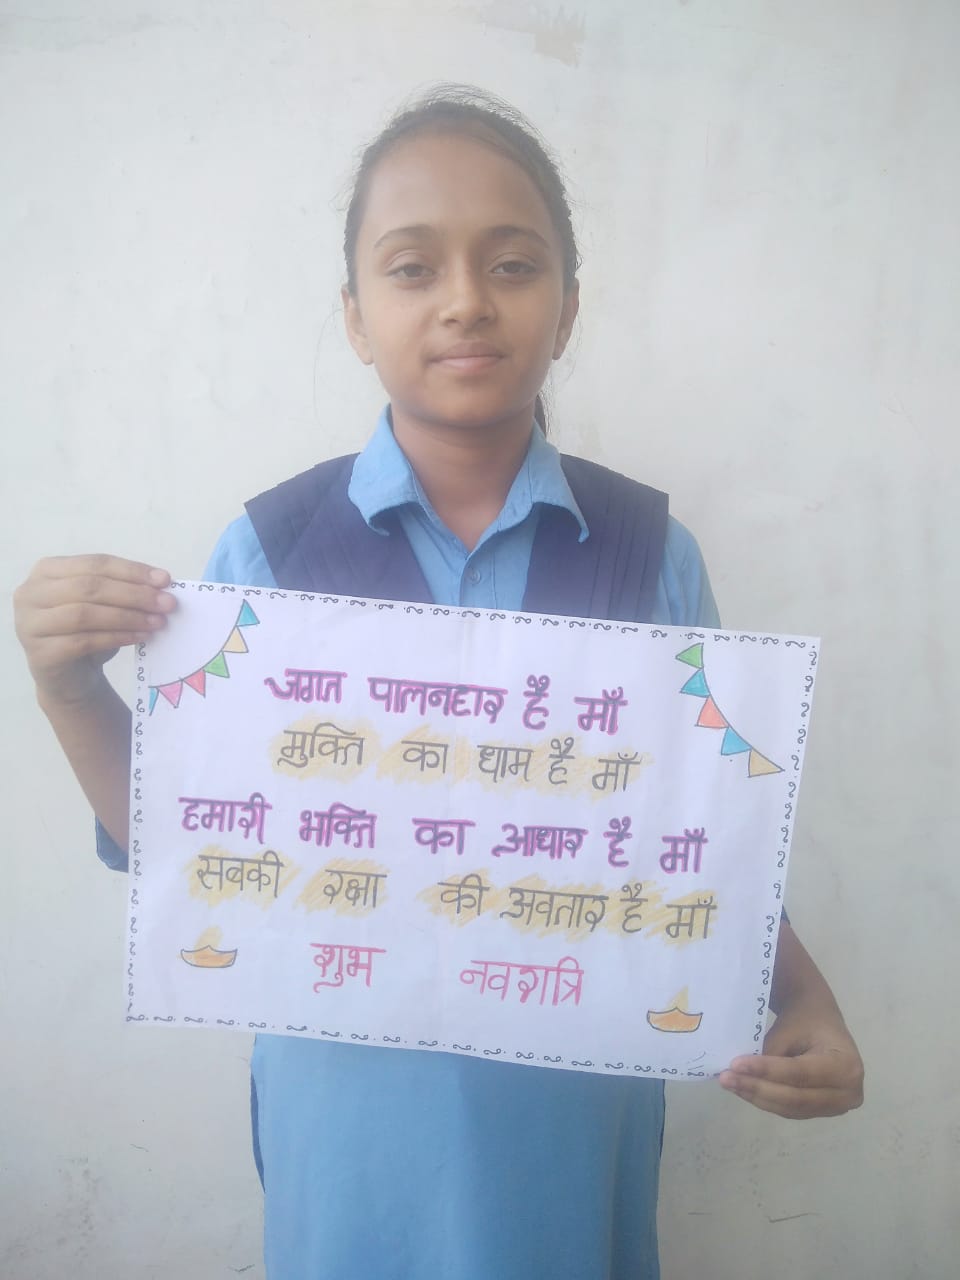 जगत पालनहार है माँ
मुक्ति का धाम है माँ
हमारी भक्ति का आधार है माँ
सबकी रक्षा की अवतार है माँ
शुभ नवरात्रि